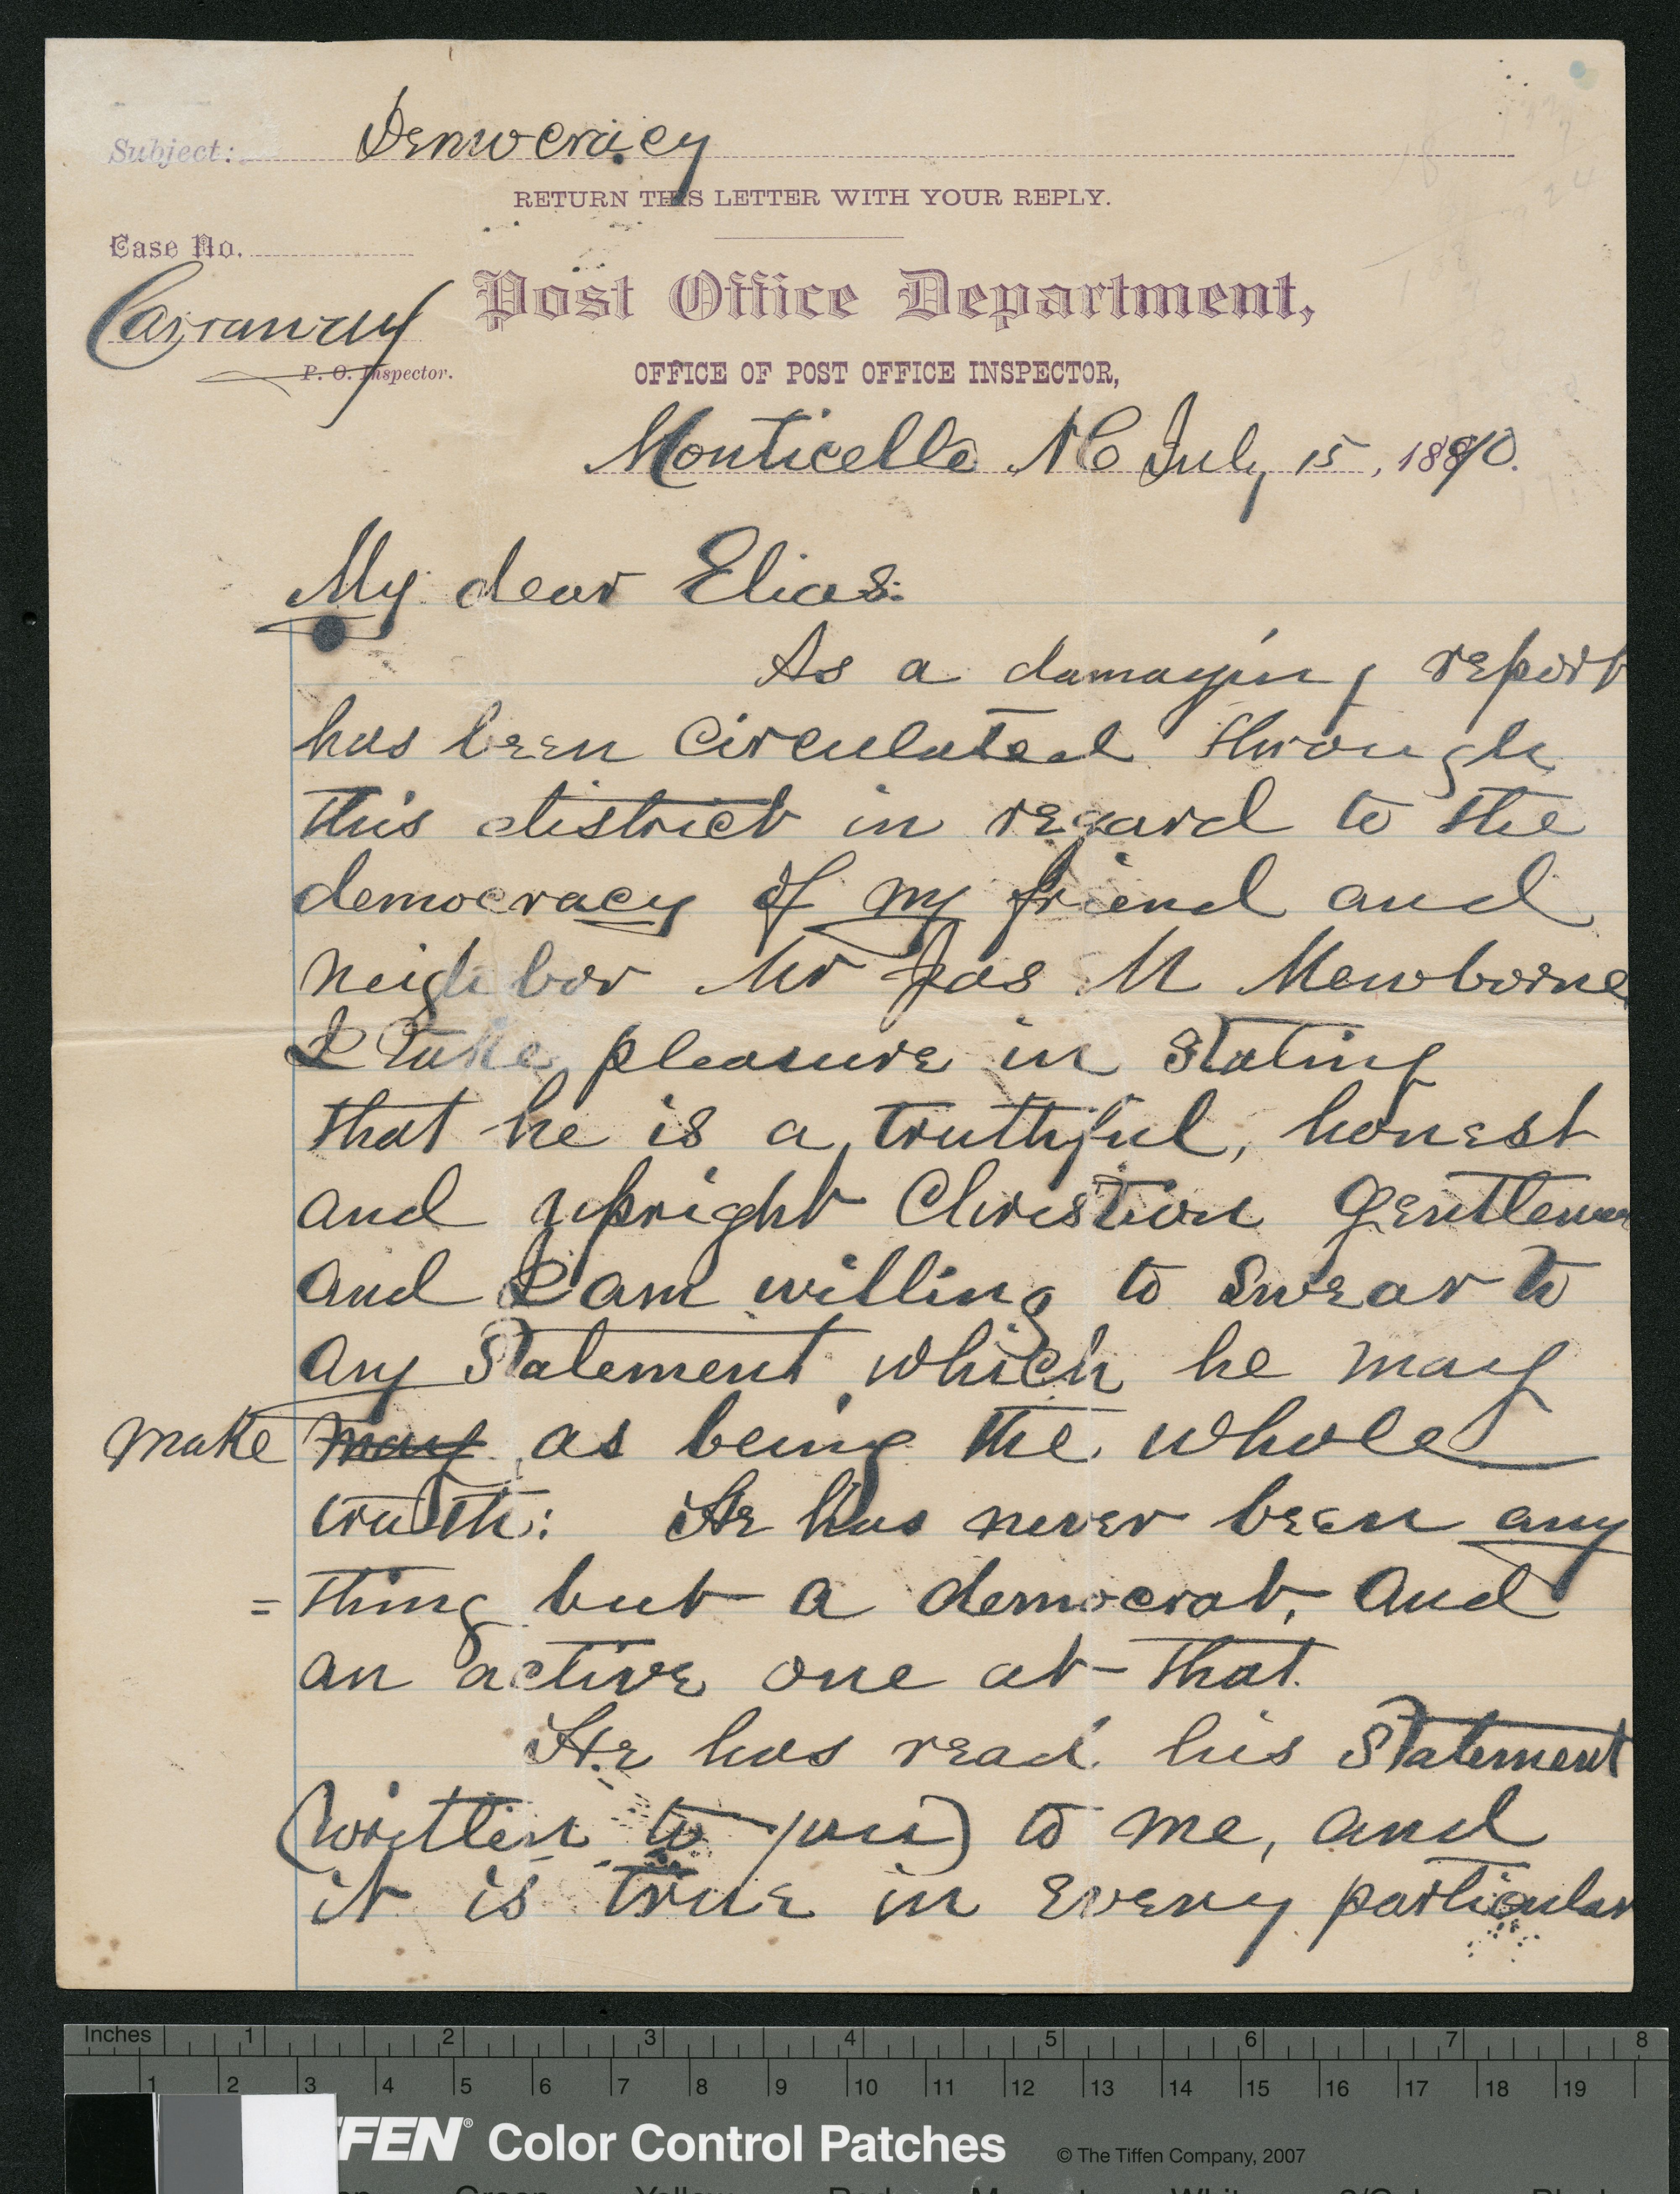 Subject: Democracy
RETURN THIS LETTER WITH YOUR REPLY.
Case No.
Post Office Department,
P. O. Inspector.
OFFICE OF POST OFFICE INSPECTOR,
Monticello NC July 15, 1890.
My dear Elias:
As a damaging report
has been circulated through
this district in regard to the
democracy of my friend and
neighbor Mr Jas M Mewborne
I take pleasure in stating
that he is a truthful, honest
and upright Christian Gentleman
and I am willing to swear to
any statement which he may
make may as being the whole
truth: He has never been any
=thing but a democrat, and
an active one at that.
He has read his statement
(written to you) to me, and
it is true in every particular
Inches 1 2 3 4 5 6 7 8
1 2 3 4 5 6 7 8 9 10 11 12 13 14 15 16 17 18 19
FFEN® Color Control Patches © The Tiffen Company, 2007